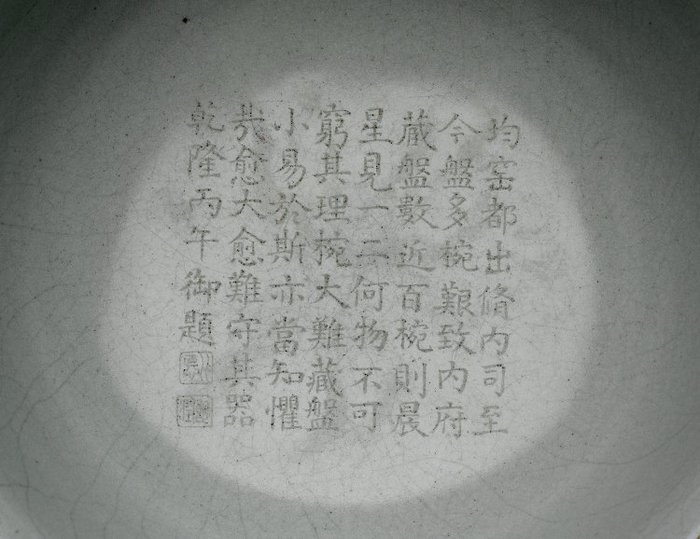 均窑都出脩内司至
今盤多椀艱致内府
蔵盤數近百椀則晨
星見一二何物不可
窮其理椀大難藏盤
小易於斯亦當知懼
㢤愈大愈難守其器
乾隆丙午御題